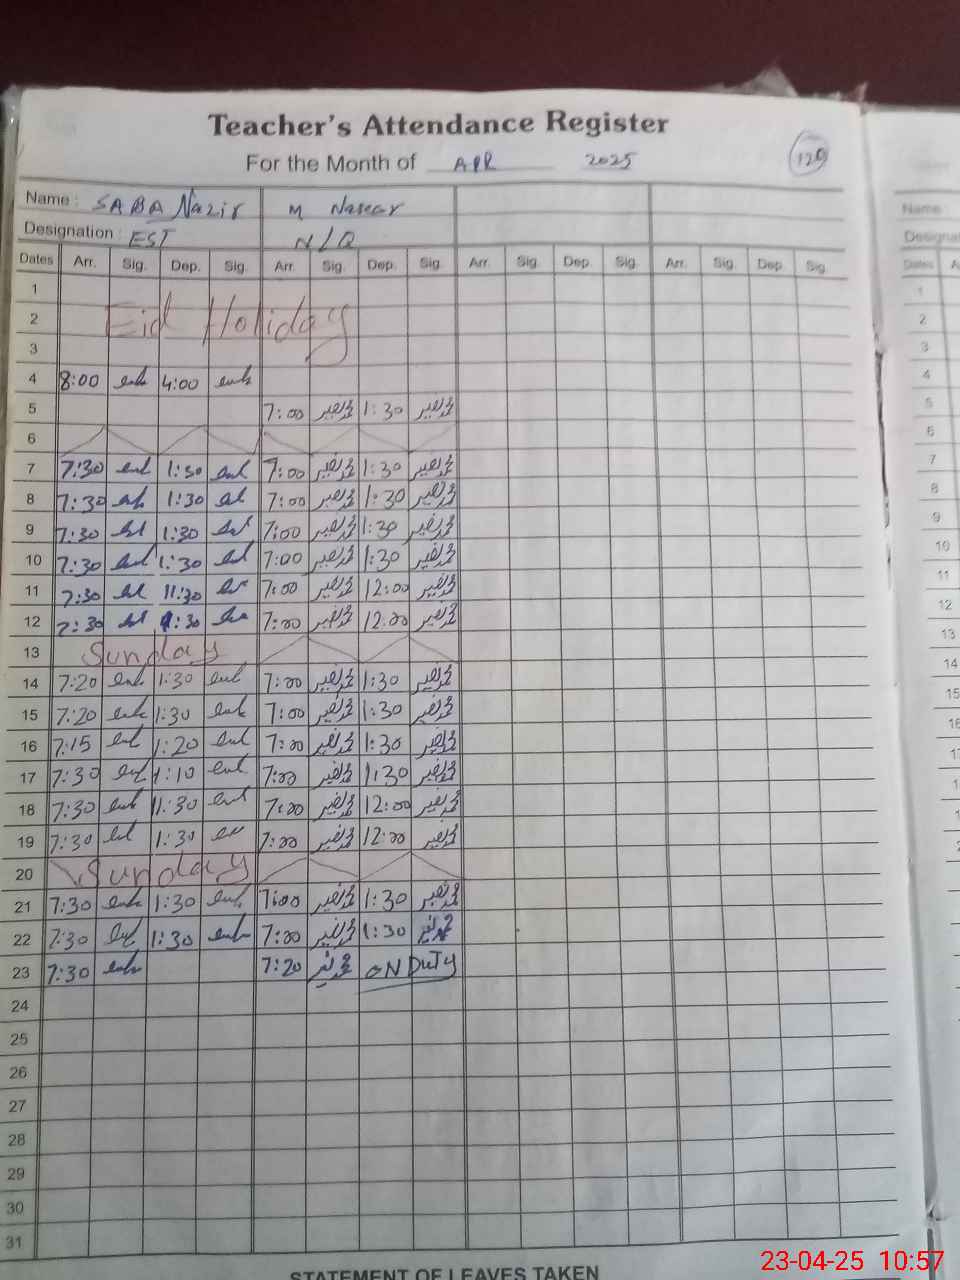 Teacher's Attendance Register
For the Month of APR 2025 120
Name : SABA Nazir M Naseer
Designation : EST N/Q
Dates Arr. Sig. Dep. Sig. Arr. Sig. Dep. Sig. Arr. Sig. Dep. Sig. Arr. Sig. Dep. Sig.
1
2 Eid Holiday
3
4 8:00 4:00
5 7:00 محمد نصیر 1:30 محمد نصیر
6
7 7:30 1:30 7:00 محمد نصیر 1:30 محمد نصیر
8 7:30 1:30 7:00 محمد نصیر 1:30 محمد نصیر
9 7:30 1:30 7:00 محمد نصیر 1:30 محمد نصیر
10 7:30 1:30 7:00 محمد نصیر 1:30 محمد نصیر
11 7:30 11:30 7:00 محمد نصیر 12:00 محمد نصیر
12 7:30 :30 7:00 محمد نصیر 12:00 محمد نصیر
13 Sunday
14 7:20 1:30 7:00 محمد نصیر 1:30 محمد نصیر
15 7:20 1:30 7:00 محمد نصیر 1:30 محمد نصیر
16 7:15 1:20 7:00 محمد نصیر 1:30 محمد نصیر
17 7:30 1:10 7:00 محمد نصیر 1:30 محمد نصیر
18 7:30 11:30 7:00 محمد نصیر 12:00 محمد نصیر
19 7:30 1:30 7:00 محمد نصیر 12:00 محمد نصیر
20 Sunday
21 7:30 1:30 7:00 محمد نصیر 1:30 محمد نصیر
22 7:30 1:30 7:00 محمد نصیر 1:30 محمد نصیر
23 7:30 7:20 محمد نصیر ON DUTY
24
25
26
27
28
29
30
31
STATEMENT OF LEAVES TAKEN
Name :
Designat
Dates A
1
2
3
4
5
6
7
8
9
10
11
12
13
14
15
16
23-04-25 10:57